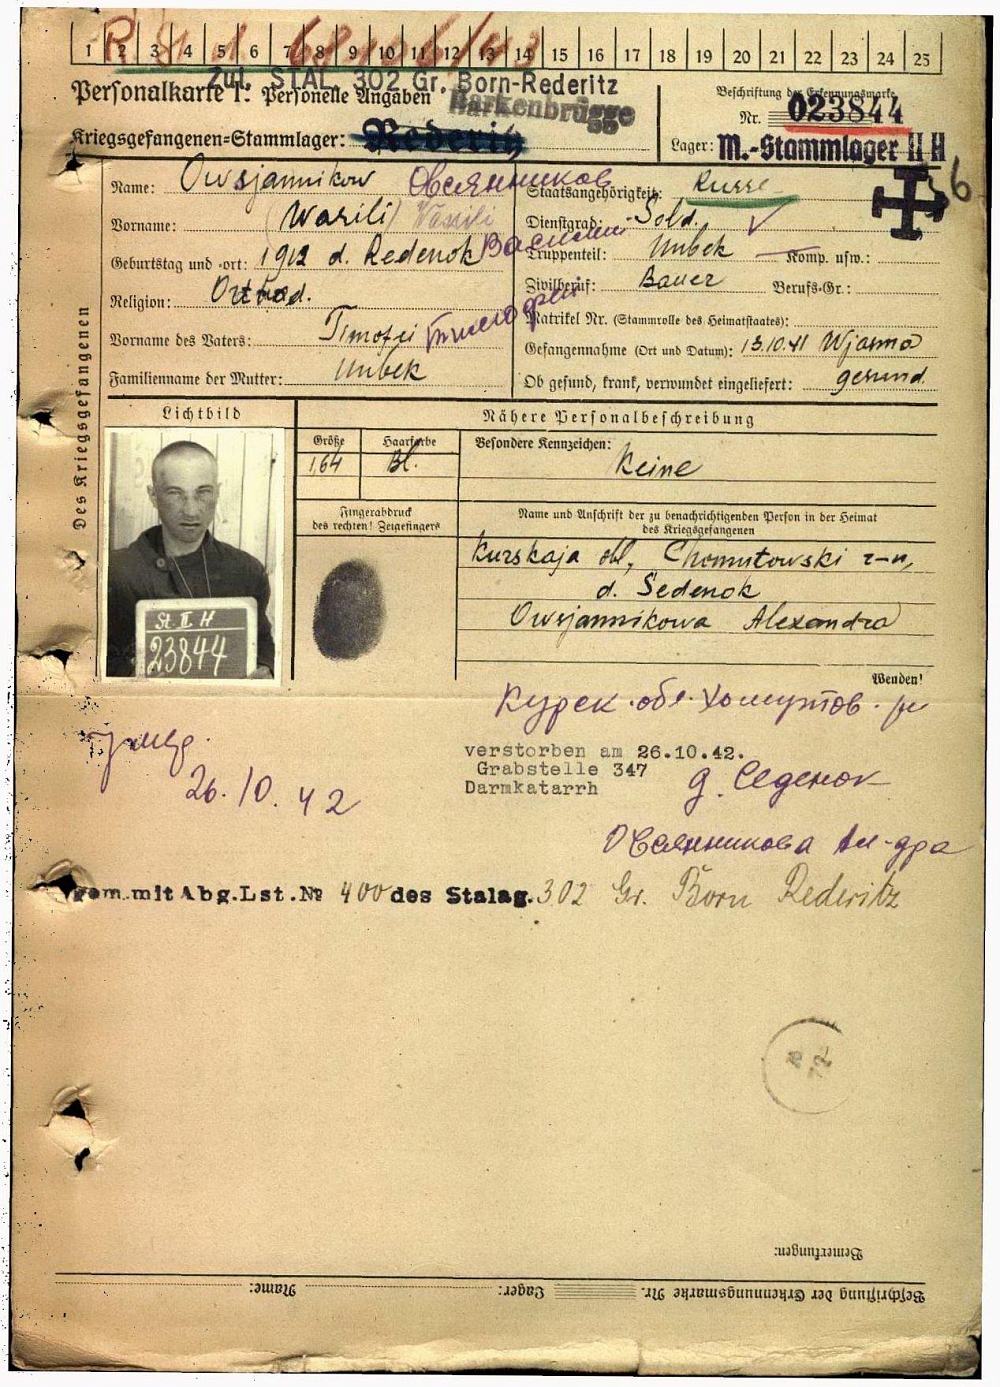 1 2 3 4 5 6 7 8 9 10 11 12 13 14 15 16 17 18 19 20 21 22 23 24 25
Zul. STAL. 302 Gr. Born-Rederitz
Personalkarte I: Personelle Angaben
Barkenbrügge
Kriegsgefangenen-Stammlager: Rederitz
Beschriftung der Erkennungsmarke
Nr. 023844
Lager: M.-Stammlager II H
Des Kriegsgefangenen
Name: Owsjannikow Овсянников
Vorname: (Wasili) Wasili Василий
Geburtstag und -ort: 1912 d. Redenok
Religion: Ortod.
Vorname des Vaters: Timofei Тимофей
Familienname der Mutter: Unbek
Staatsangehörigkeit: Russe
Dienstgrad: Sold.
Truppenteil: Unbek Komp. usw.:
Zivilberuf: Bauer Berufs-Gr.:
Matrikel Nr. (Stammrolle des Heimatstaates):
Gefangennahme (Ort und Datum): 13.10.41 Wjasma
Ob gesund, krank, verwundet eingeliefert: gesund
Lichtbild
St. II H
23844
Nähere Personalbeschreibung
Größe Haarfarbe Besondere Kennzeichen:
1,64 Bl. Keine
Fingerabdruck
des rechten! Zeigefingers
Name und Anschrift der zu benachrichtigenden Person in der Heimat
des Kriegsgefangenen
Kurskaja obl, Chomutowski r-n,
d. Sedenok
Owsjannikowa Alexandra
Wenden!
Курск. обл. Хомутов. рн
умер.
26.10.42
verstorben am 26.10.42.
Grabstelle 347
Darmkatarrh
д. Седенок
Овсянникова Ал-дра
gem. mit Abg.Lst.№ 400 des Stalag. 302 Gr. Born Rederitz
Bemerkungen:
Beschriftung der Erkennungsmarke Nr. Lager: Name: